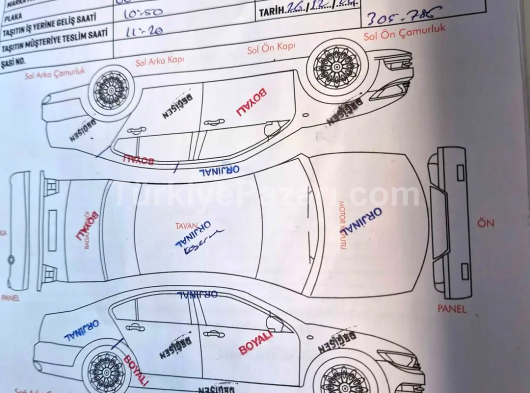 PLAKA
TAŞITIN İŞ YERİNE GELİŞ SAATİ 10:50
TARİH
TAŞITIN MÜŞTERİYE TESLİM SAATİ 11-20
305-786
ŞASİ NO.
Sol Arka Çamurluk
Sol Arka Kapı
Sol Ön Kapı
Sol Ön Çamurluk
DEĞİŞEN
DEĞİŞEN
BOYALI
DEĞİŞEN
BOYALI
ORJİNAL
TurkiyePazari.com
BOYALI
TAVAN
ORJİNAL
ORJİNAL
ÖN
PANEL
PANEL
ORJİNAL
ORJİNAL
ORJİNAL
BOYALI
DEĞİŞEN
BOYALI
DEĞİŞEN
DEĞİŞEN